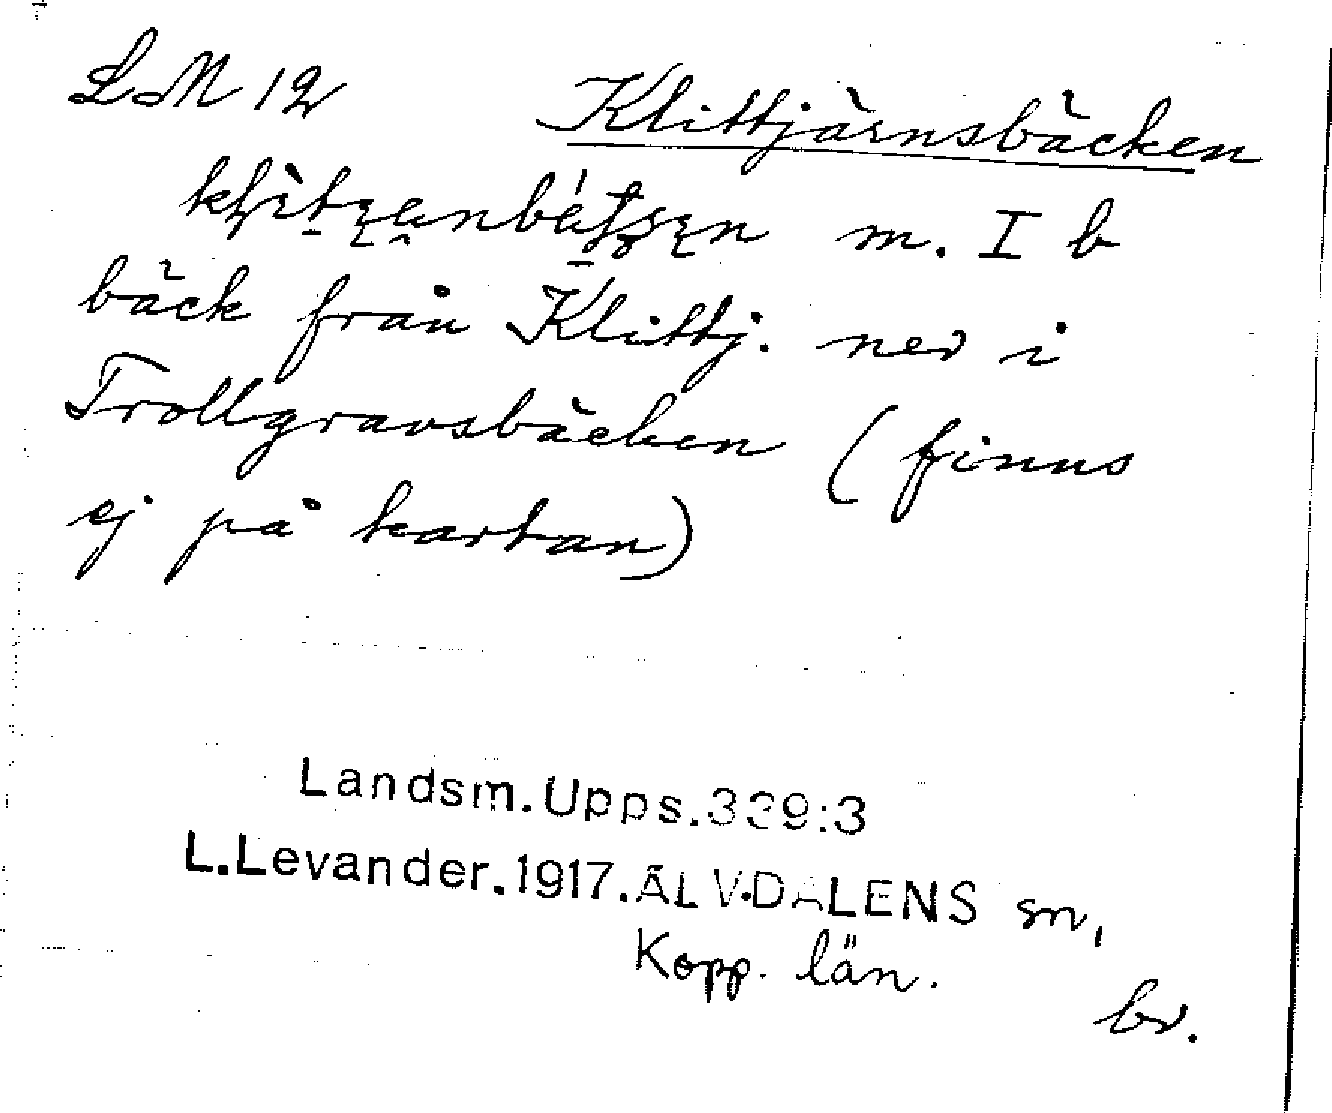 LM 12 Klittjärnsbäcken
m. I b
bäck från Klittj. ner i
Trollgravsbäcken (finns
ej på kartan)
Landsm.Upps.339:3
L.Levander.1917.ÄLVDALENS sn,
Kopp. län.
br.